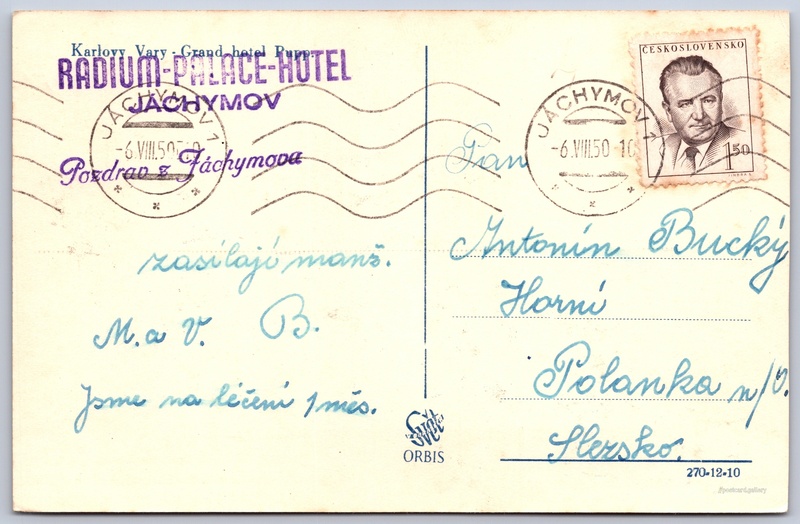 Karlovy Vary - Grand hotel Pupp.
RADIUM-PALACE-HOTEL
JÁCHYMOV
JÁCHYMOV 1
-6.VIII.50
Pozdrav z Jáchymova
zasílají manž.
M. a V. B.
Jsme na léčení 1 měs.
Svět
ORBIS
ČESKOSLOVENSKO
1 50
JÁCHYMOV 1
-6.VIII.50-10
Pan
Antonín Bucký
Horní
Polanka n/O.
Slezsko.
270-12-10
#postcard.gallery